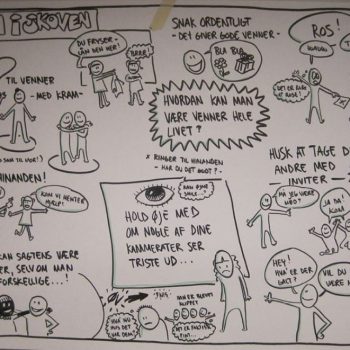 I SKOVEN
DU FRYSER -
LÅN DEN HER!
BRRR!
SNAK ORDENTLIGT
- DET GIVER GODE VENNER -
BLA BLA
BLA
ROS!
TIL VENNER
- MED KRAM -
HVORDAN KAN MAN
VÆRE VENNER HELE
LIVET?
DET ER BARE
SÅ
* RINGER TIL HINANDEN
- HAR DU DET GODT? -
HUSK AT TAGE DE
ANDRE MED
- INVITER -
HINANDEN!
KOM VI HENTER
HJÆLP!
HOLD ØJE MED
OM NOGLE AF DINE
KAMMERATER SER
TRISTE UD...
MÅ JEG VÆRE
MED?
JA DA!
KOM
KAN SAGTENS VÆRE
SELV OM MAN
FORSKELLIGE...!
HAN ER BLEVET
KLIPPET
HVA' NU
HVIS DET
VAR DEM?
DET ER
HEY!
HVA' ER DER
GALT?
VIL DU
VÆRE